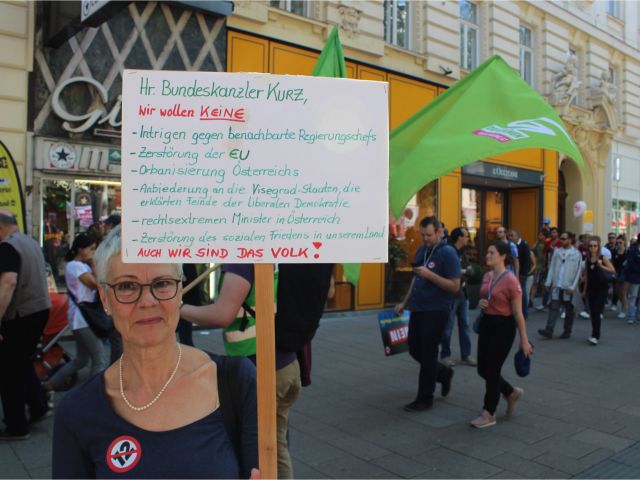 Hr. Bundeskanzler KURZ,
Wir wollen KEINE
- Intrigen gegen benachbarte Regierungschefs
- Zerstörung der EU
- Orbanisierung Österreichs
- Anbiederung an die Visegrad-Staaten, die
erklärten Feinde der Liberalen Demokratie
- rechtsextremen Minister in Österreich
- Zerstörung des sozialen Friedens in unserem Land
AUCH WIR SIND DAS VOLK!
L'OCCITANE